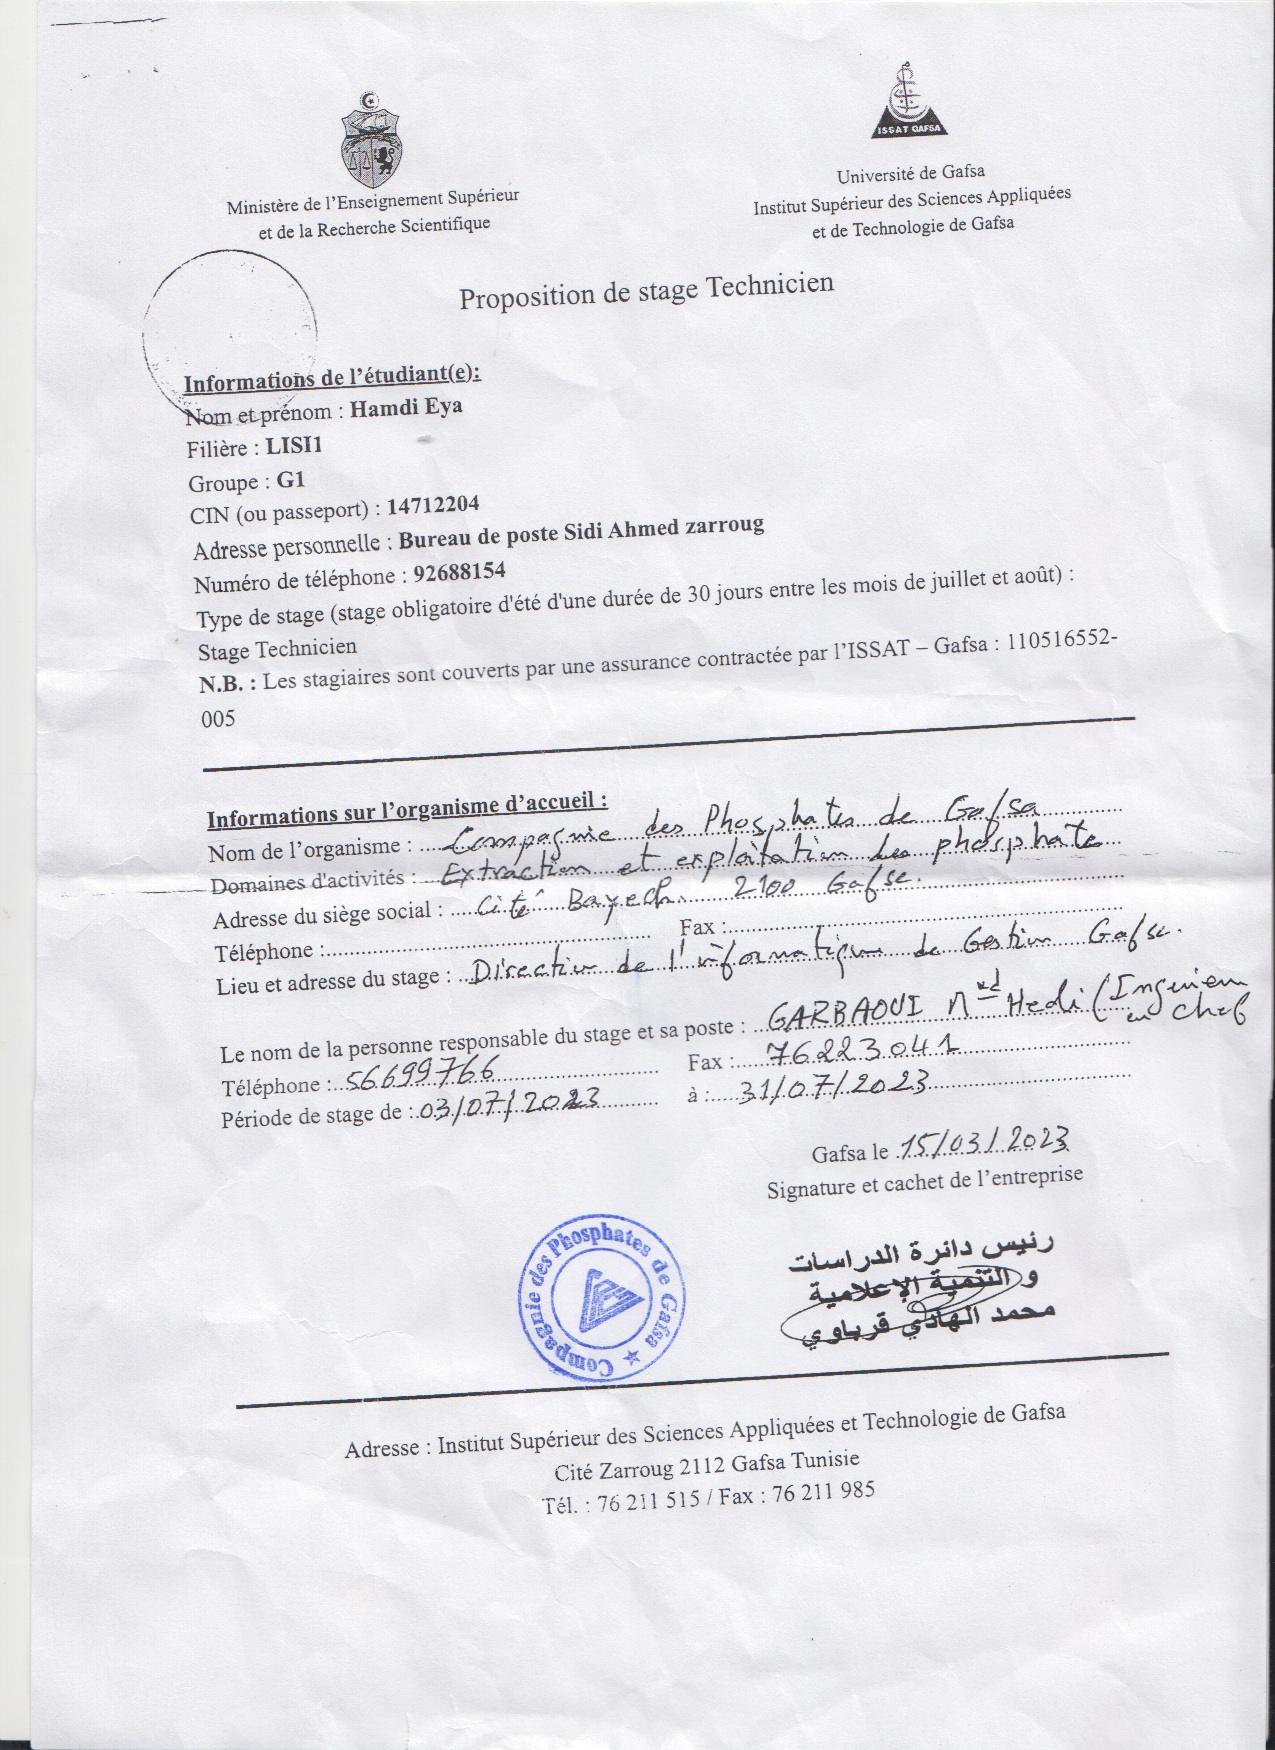 ISSAT GAFSA
Ministère de l'Enseignement Supérieur
et de la Recherche Scientifique
Université de Gafsa
Institut Supérieur des Sciences Appliquées
et de Technologie de Gafsa
Proposition de stage Technicien
Informations de l'étudiant(e):
Nom et prénom : Hamdi Eya
Filière : LISI1
Groupe : G1
CIN (ou passeport) : 14712204
Adresse personnelle : Bureau de poste Sidi Ahmed zarroug
Numéro de téléphone : 92688154
Type de stage (stage obligatoire d'été d'une durée de 30 jours entre les mois de juillet et août) :
Stage Technicien
N.B. : Les stagiaires sont couverts par une assurance contractée par l'ISSAT – Gafsa : 110516552-
005
Informations sur l'organisme d'accueil :
Nom de l'organisme : Compagnie des Phosphates de Gafsa
Domaines d'activités : Extraction et exploitation des phosphate
Adresse du siège social : Cité Bayech. 2100 Gafsa.
Téléphone : Fax :
Lieu et adresse du stage : Direction de l'informatique de Gestion Gafsa.
Le nom de la personne responsable du stage et sa poste : GARBAOUI Med Hedi (Ingénieur
en Chef
Téléphone : 56699766 Fax : 76223041
Période de stage de : 03/07/2023 à : 31/07/2023
Gafsa le 15/03/2023
Signature et cachet de l'entreprise
Compagnie des Phosphates de Gafsa
رئيس دائرة الدراسات
و التنمية الإعلامية
محمد الهادي قرباوي
Adresse : Institut Supérieur des Sciences Appliquées et Technologie de Gafsa
Cité Zarroug 2112 Gafsa Tunisie
Tél. : 76 211 515 / Fax : 76 211 985